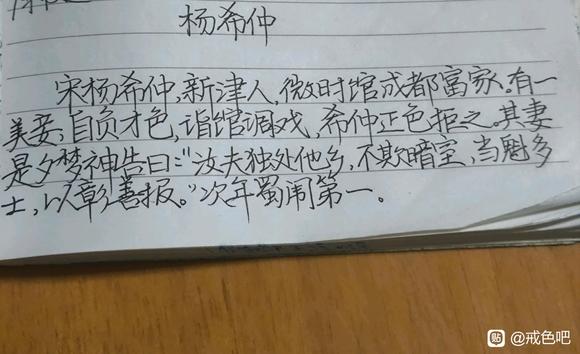 杨希仲
宋杨希仲,新津人,微时馆成都富家。有一
美妾,自负才色,诣馆调戏,希仲正色拒之。其妻
是夕梦神告曰:“汝夫独处他乡,不欺暗室,当魁多
士,以彰善报。”次年蜀闱第一。
贴 @戒色吧